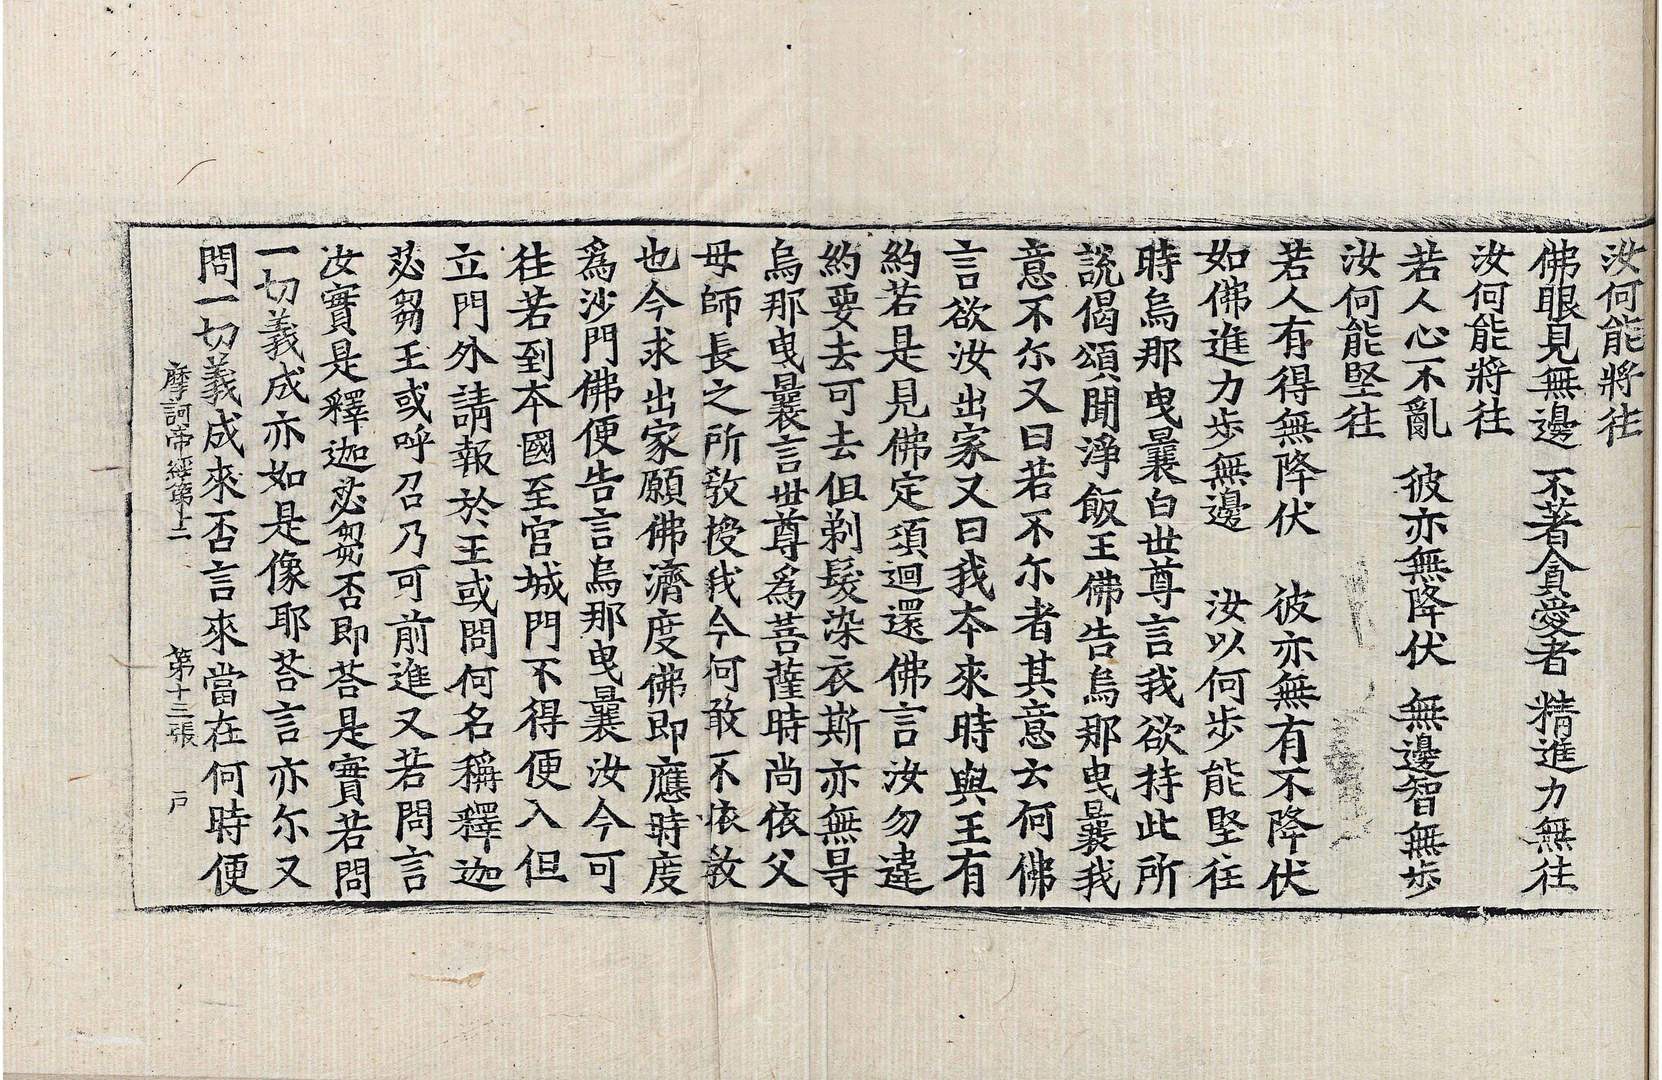 汝何能將往
佛眼見無邊 不著貪愛者 精進力無往
汝何能將往
若人心不亂 彼亦無降伏 無邊智無步
汝何能堅往
若人有得無降伏 彼亦無有不降伏
如佛進力步無邊 汝以何步能堅往
時烏那曳曩白世尊言我欲持此所
說偈頌聞淨飯王佛告烏那曳曩我
意不尓又曰若不尓者其意云何佛
言欲汝出家又曰我本來時與王有
約若是見佛定須迴還佛言汝勿違
約要去可去但剃髮染衣斯亦無㝵
烏那曳曩言世尊爲菩薩時尚依父
母師長之所敎授我今何敢不依敎
也今求出家願佛濟度佛即應時度
爲沙門佛便告言烏那曳曩汝今可
往若到本國至宮城門不得便入但
立門外請報於王或問何名稱釋迦
苾芻王或呼召乃可前進又若問言
汝實是釋迦苾芻否即荅是實若問
一切義成亦如是像耶荅言亦尓又
問一切義成來否言來當在何時便
摩訶帝經第十二 第十三張 戸